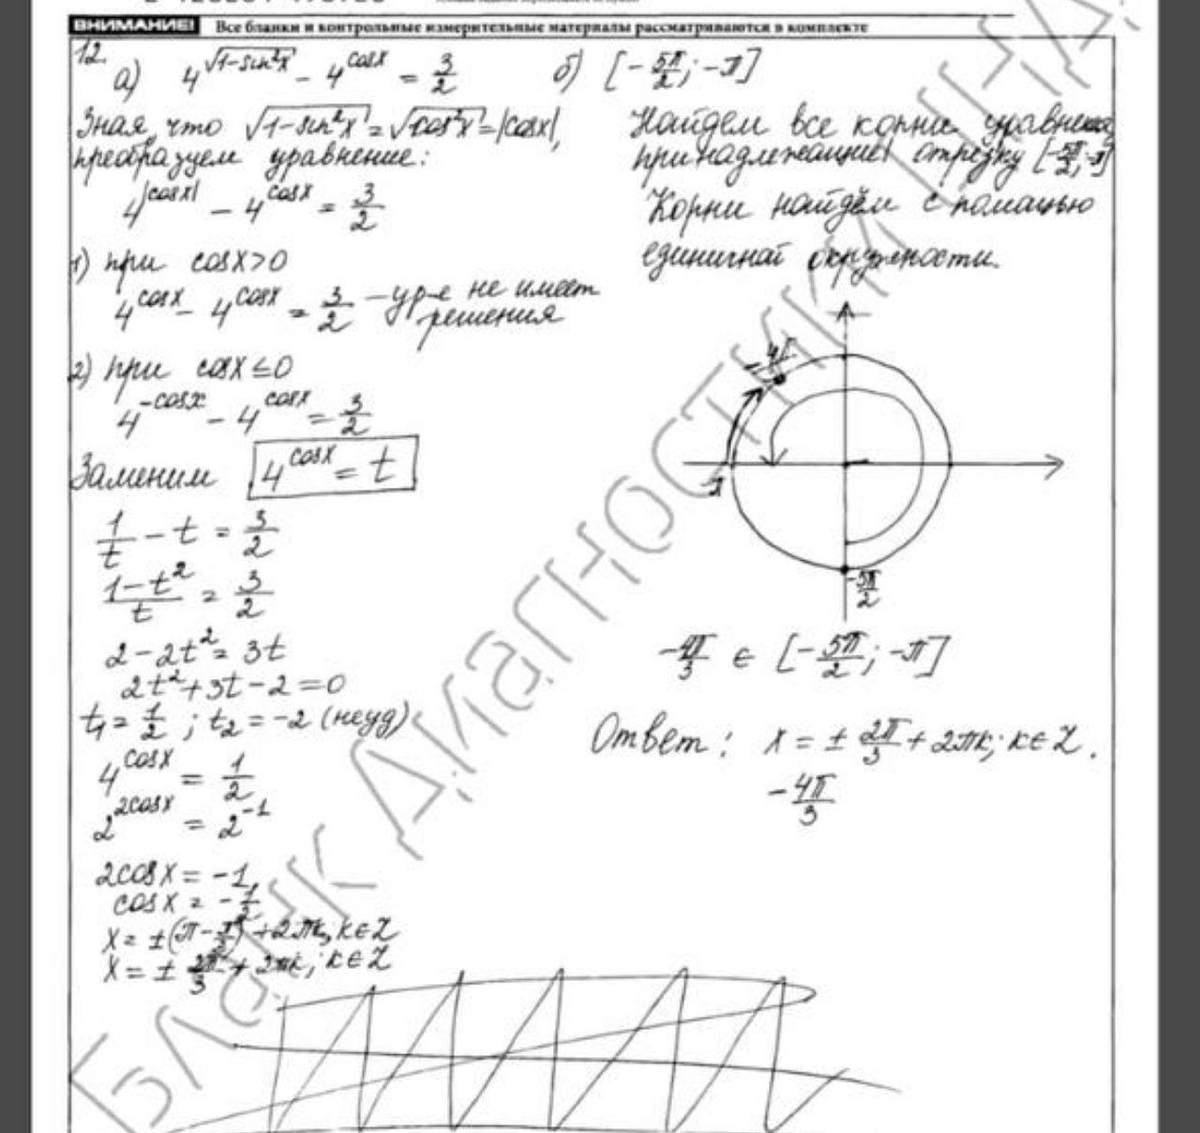 ВНИМАНИЕ! Все бланки и контрольные измерительные материалы рассматриваются в комплекте
12.
а) 4^√(1-sin²x) - 4^cosx = 3/2
Зная, что √(1-sin²x) = √(cos²x) = |cosx|,
преобразуем уравнение:
4^|cosx| - 4^cosx = 3/2
1) при cosx>0
4^cosx - 4^cosx = 3/2 - ур-е не имеет
решения
2) при cosx≤0
4^-cosx - 4^cosx = 3/2
Заменим 4^cosx = t
1/t - t = 3/2
(1-t²)/t = 3/2
2-2t² = 3t
2t²+3t-2=0
t₁ = 1/2 ; t₂ = -2 (неуд)
4^cosx = 1/2
2^2cosx = 2^-1
2cosx = -1,
cosx = -1/2
x = ±(π-π/3) + 2πk, k∈Z
x = ± 2π/3 + 2πk; k∈Z
б) [-5π/2; -π]
Найдем все корни уравнения,
принадлежащие отрезку [-5π/2; -π]
Корни найдём с помощью
единичной окружности.
-π
-5π/2
-4π/3 ∈ [-5π/2; -π]
Ответ: x = ± 2π/3 + 2πk; k∈Z.
-4π/3
Бланк Диагностики